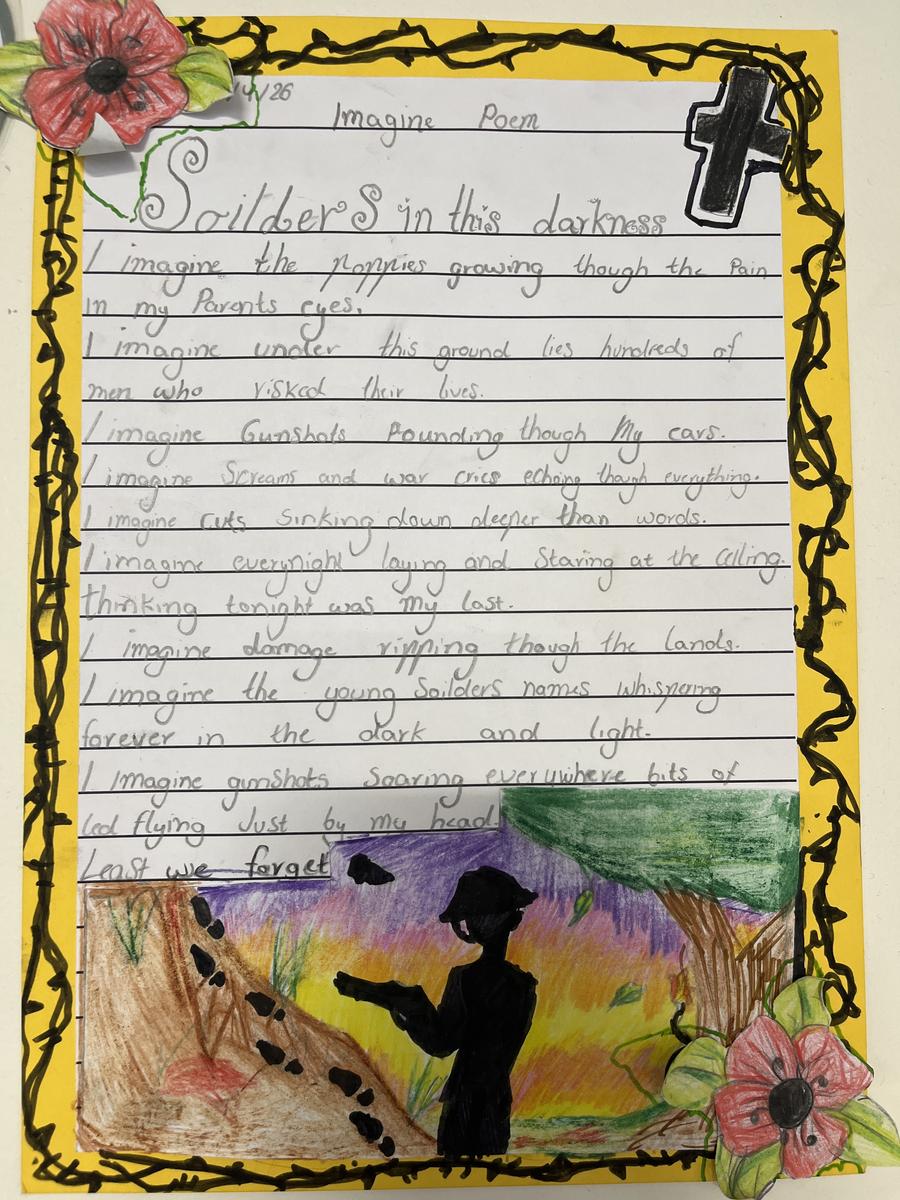 /4/26
Imagine Poem
SoilderS in this darkness
I imagine the poppies growing though the Pain
in my Parents eyes.
I imagine under this ground lies hundreds of
men who risked their lives.
I imagine Gunshots Pounding though My ears.
I imagine Screams and war cries echoing though everything.
I imagine cuts sinking down deeper than words.
I imagine everynight laying and Staring at the ceiling.
thinking tonight was my last.
I imagine damage ripping though the lands.
I imagine the young Soilders names whispering
forever in the dark and light.
I Imagine gunshots Soaring everywhere bits of
led flying Just by my head.
Least we forget